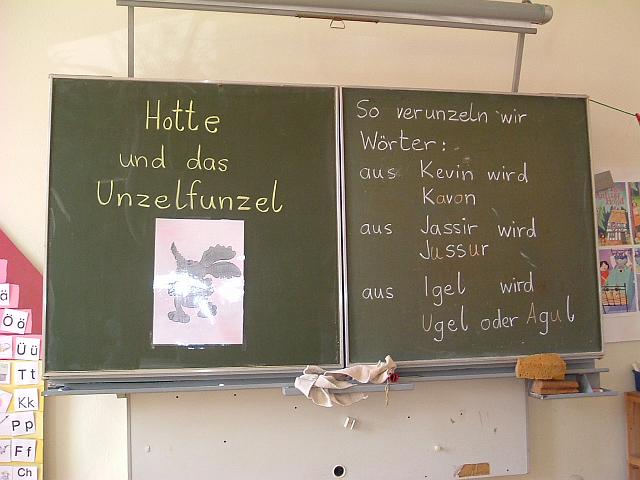 Hotte
und das
Unzelfunzel
So verunzeln wir
Wörter:
aus Kevin wird
Kavon
aus Jassir wird
Jussur
aus Igel wird
Ugel oder Agul
ä
Ö ö
Ü ü
T t
K k
P p
F f
Ch